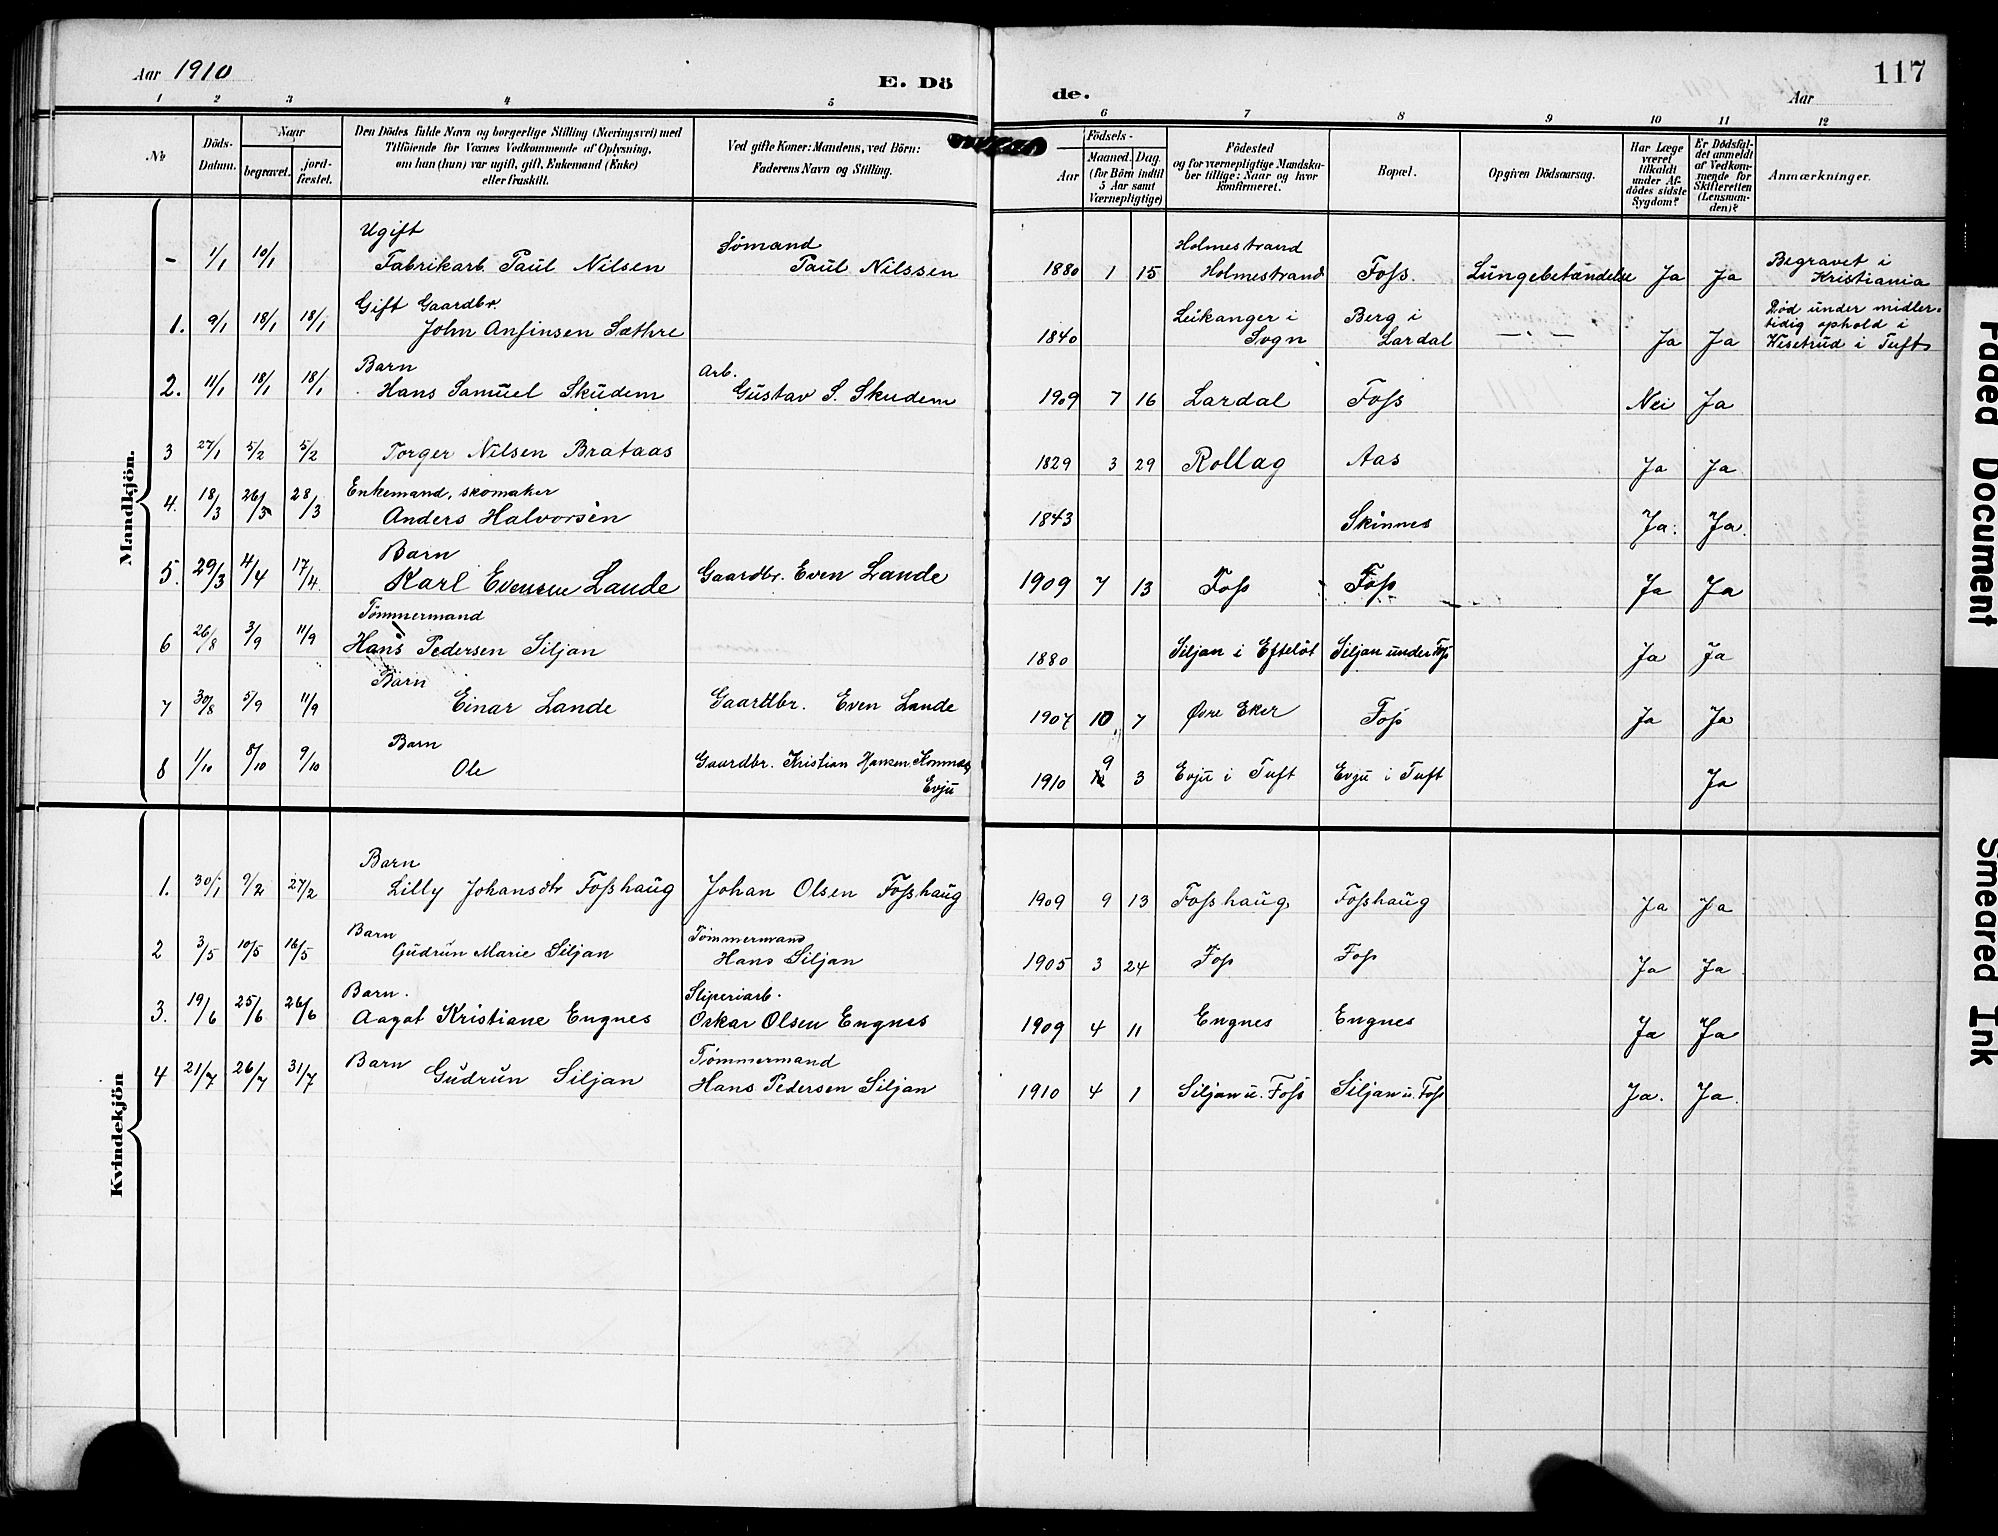 Aar 1910
E. Dö
de.
Aar
117
1 2 3 4 5 6 7 8 9 10 11 12
No
Döds-
Datum.
Naar
begravet.
jord-
fæstet.
Den Dödes fulde Navn og borgerlige Stilling (Næringsvei) med
Tilföiende for Voxnes Vedkommende af Oplysning,
om han (hun) var ugift, gift, Enkemand (Enke)
eller fraskilt.
Ved gifte Koner: Mandens, ved Börn:
Faderens Navn og Stilling.
Födsels-
Aar
Maaned.
Dag.
(for Börn indtil
5 Aar samt
Værnepligtige)
Födested
og for værnepligtige Mandska-
ber tillige: Naar og hvor
konfirmeret.
Bopæl.
Opgiven Dödsaarsag.
Har Læge
været
tilkaldt
under Af-
dödes sidste
Sygdom?
Er Dödsfal-
det anmeldt
af Vedkom-
mende for
Skifteretten
(Lensman-
den)?
Anmærkninger.
Mandkjön.
Ugift
Sømand
Holmestrand
Begravet i
– 1/1 10/1 Fabrikarb. Paul Nilsen Paul Nilssen 1880 1 15 Holmestrand Foss. Lungebetændelse Ja Ja Kristiania
Gift Gaardbr.
Leikanger i
Berg i
Død under midler-
tidig ophold i
1. 9/1 18/1 18/1 John Anfinsen Sæthre 1840 Sogn Lardal — " — Ja Ja Wisetrud i Tuft
Barn
Arb.
2. 11/1 18/1 18/1 Hans Samuel Skudem Gustav S. Skudem 1909 7 16 Lardal Foss Nei Ja
3 27/1 5/2 5/2 Torger Nilsen Brataas 1829 3 29 Rollag Aas Ja Ja
Enkemand, skomaker
4. 18/3 26/3 28/3 Anders Halvorsen 1843 Skinnes Ja. Ja.
Barn
5. 29/3 4/4 17/4 Karl Evensen Lande Gaardbr. Even Lande 1909 7 13 Foss Foss Ja Ja
Tømmermand
6 26/8 3/9 11/9 Hans Pedersen Siljan 1880 Siljan i Efteløt Siljan under Foss Ja Ja
Barn
7 30/8 5/9 11/9 Einar Lande Gaardbr. Even Lande 1907 10 7 Øvre Eker Foss Ja Ja
Barn
8 1/10 8/10 9/10 Ole Gaardbr. Kristian Hansen 1910 9 3 Evju i Tuft Evju i Tuft Ja
Evju
Kvindekjön
Barn
1. 30/1 9/2 27/2 Lilly Johansdtr Fosshaug Johan Olsen Fosshaug 1909 9 13 Fosshaug Fosshaug Ja Ja
Barn
Tømmermand
2 3/5 10/5 16/5 Gudrun Marie Siljan Hans Siljan 1905 3 24 Foss Foss Ja Ja.
Barn.
Sliperiarb.
3. 19/6 25/6 26/6 Aagot Kristiane Engnes Oskar Olsen Engnes 1909 4 11 Engnes Engnes Ja Ja
Barn
Tømmermand
4 21/7 26/7 31/7 Gudrun Siljan Hans Pedersen Siljan 1910 4 1 Siljan u. Foss Siljan u. Foss Ja. Ja.
Faded Document
Smeared Ink